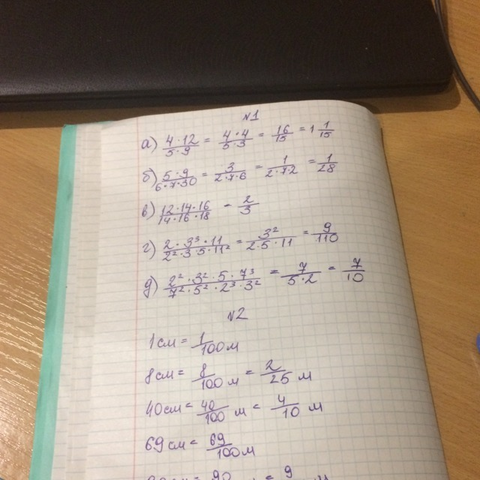 №1
а) 4·12/5·9 = 4·4/5·3 = 16/15 = 1 1/15
б) 5·9/6·7·30 = 3/2·7·6 = 1/2·7·2 = 1/28
в) 12·14·16/14·16·18 = 2/3
г) 2·3³·11/2²·3·5·11² = 3²/2·5·11 = 9/110
д) 2²·3²·5·7³/7²·5²·2³·3² = 7/5·2 = 7/10
№2
1см = 1/100 м
8см = 8/100 м = 2/25 м
40см = 40/100 м = 4/10 м
69см = 69/100 м